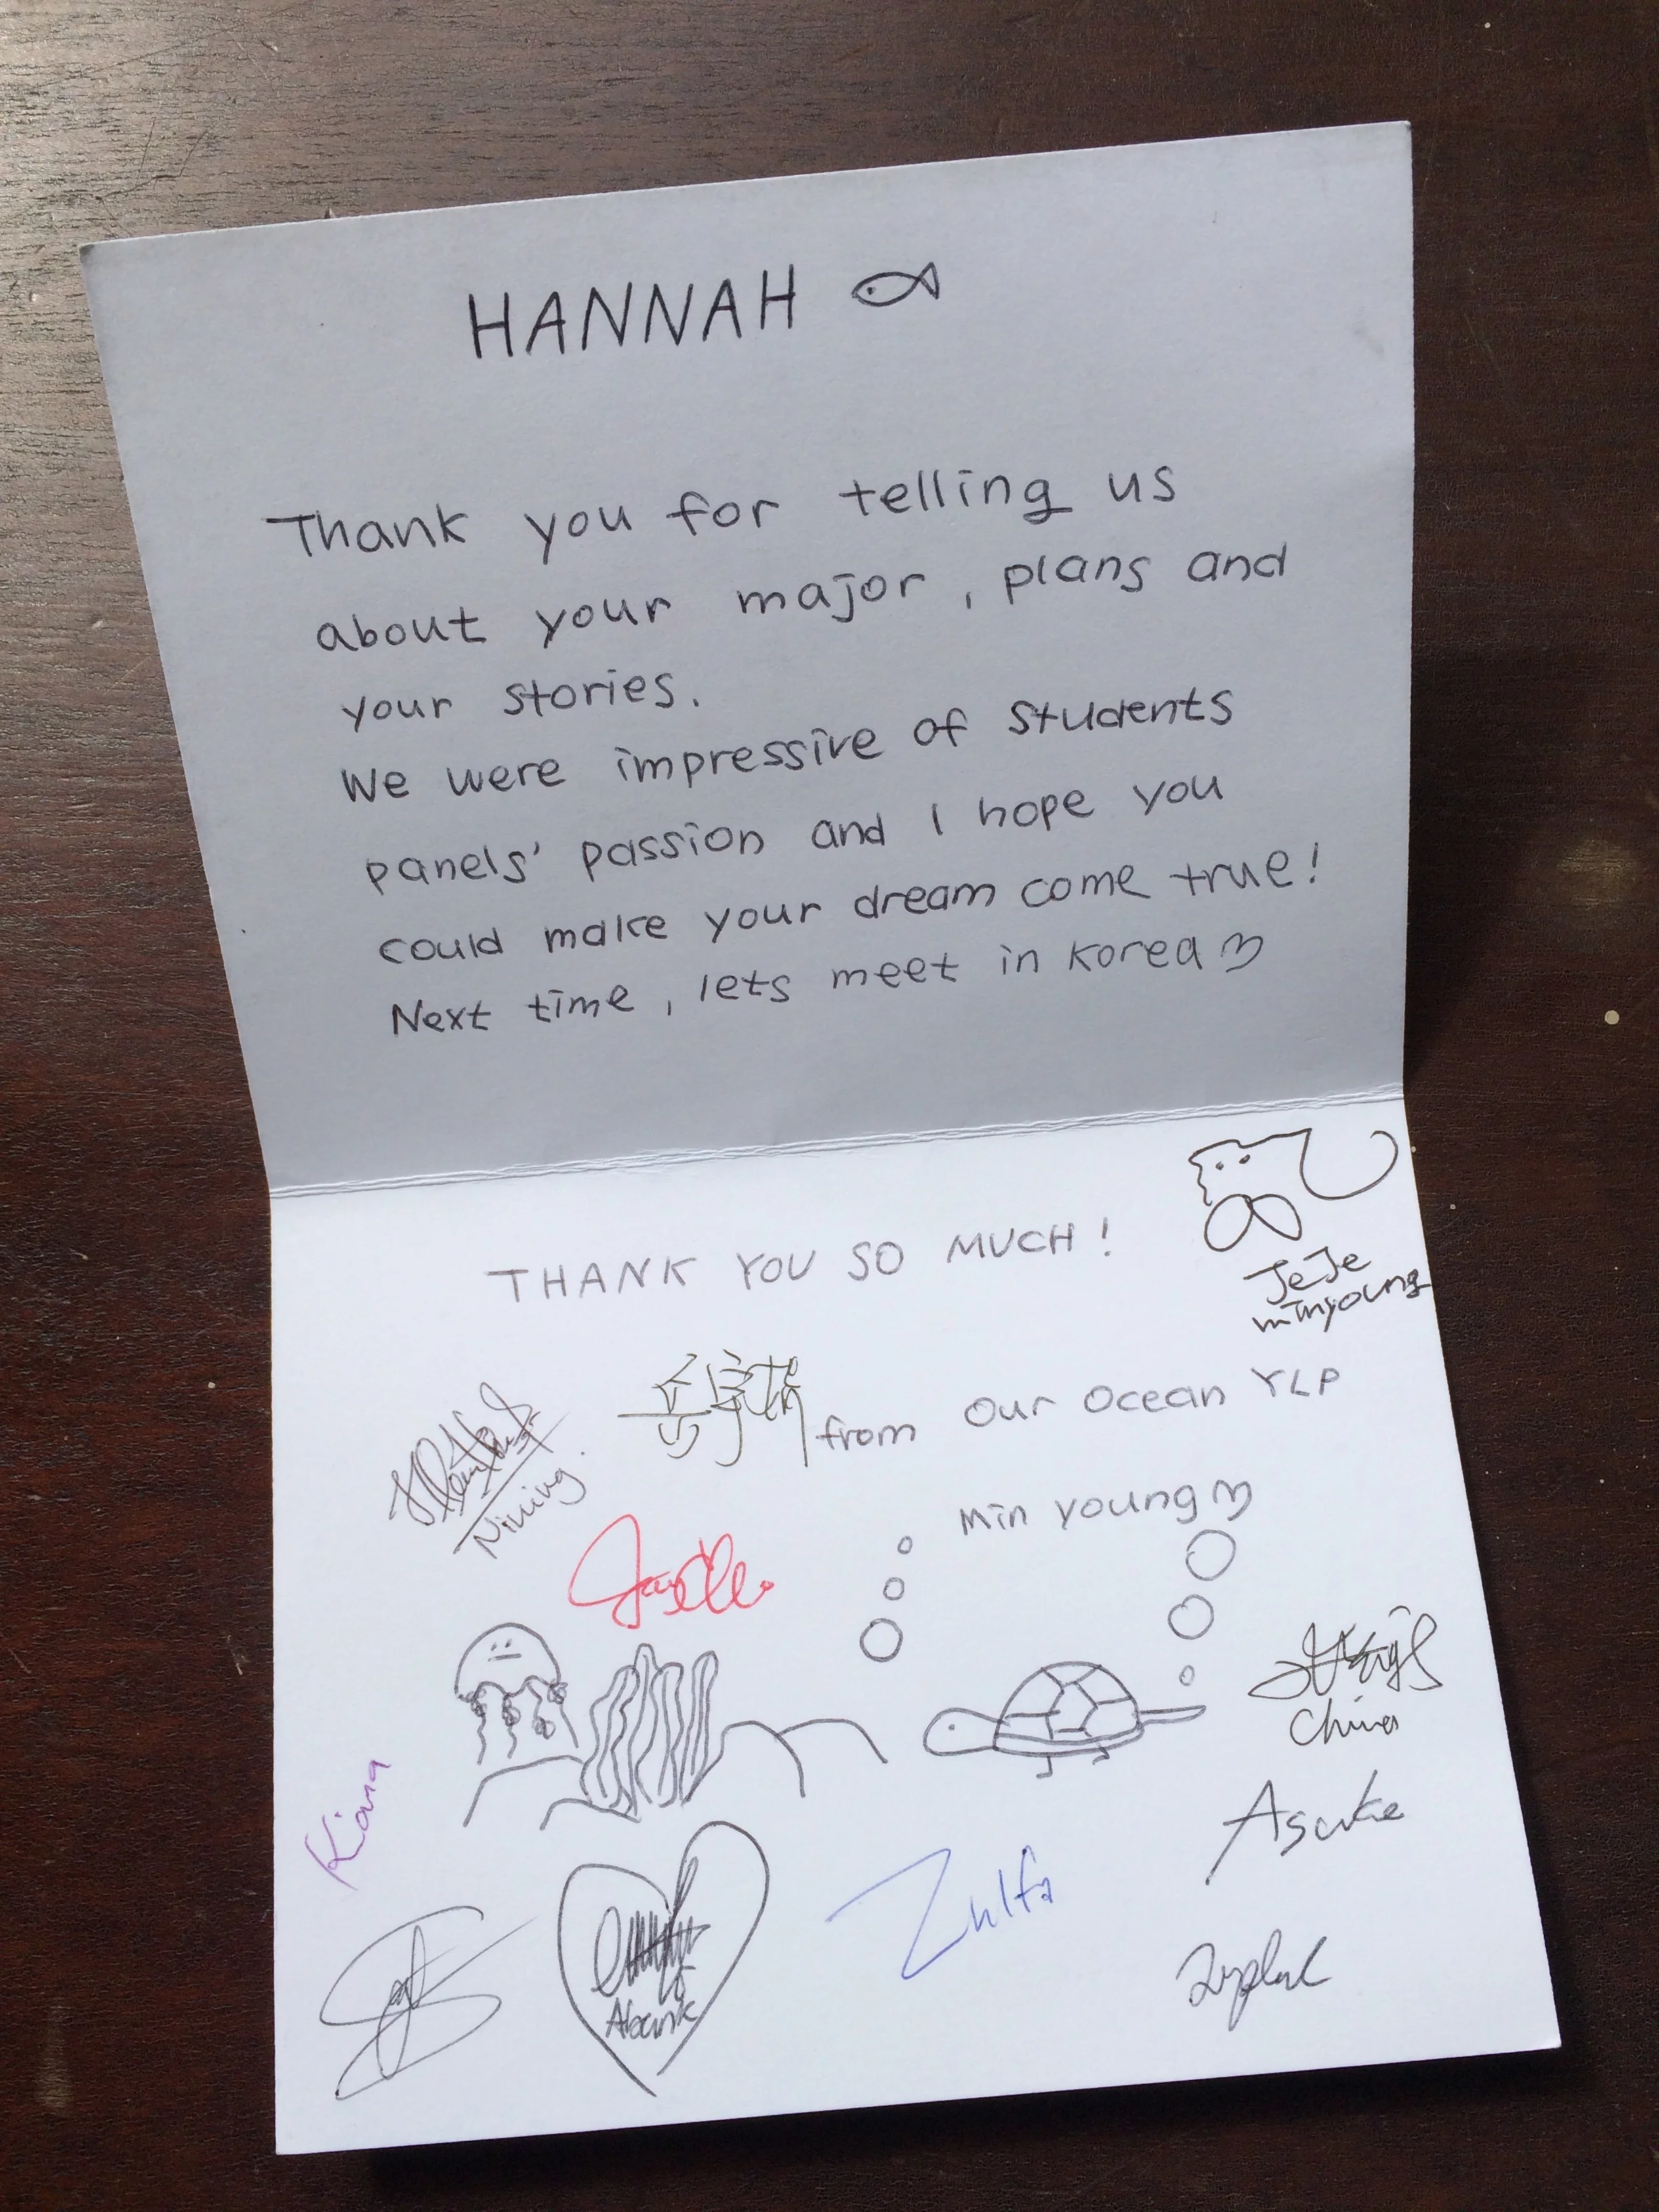 HANNAH
Thank you for telling us
about your major, plans and
your stories.
We were impressive of students
panels' passion and I hope you
could make your dream come true!
Next time, lets meet in Korea
THANK YOU SO MUCH!
JeJe
minyoung
from Our Ocean YLP
Min young
Nining.
China
Kiana
Asuke
Zulfa